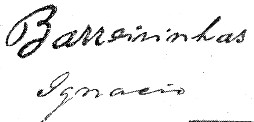 Barreirinhas
Ignacio